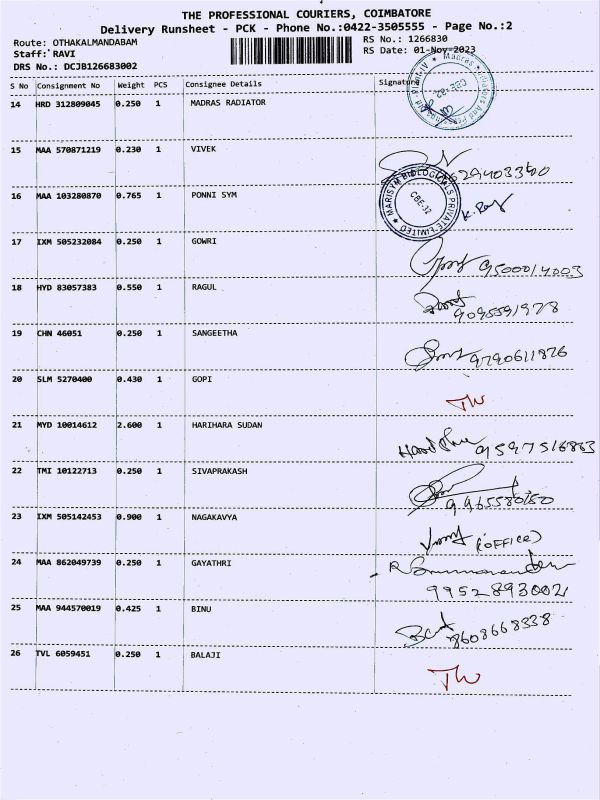 THE PROFESSIONAL COURIERS, COIMBATORE
Delivery Runsheet - PCK - Phone No.:0422-3505555 - Page No.:2
Route: OTHAKALMANDABAM RS No.: 1266830
Staff: RAVI RS Date: 01-Nov-2023
DRS No.: DCJB126683002
S No Consignment No Weight PCS Consignee Details Signature
14 HRD 312809045 0.250 1 MADRAS RADIATOR
15 MAA 570871219 0.230 1 VIVEK
16 MAA 103280870 0.765 1 PONNI SYM
MARISTM BIOLOGICALS PRIVATE LIMITED
CBE-32
17 IXM 505232084 0.250 1 GOWRI
9500014003
18 HYD 83057383 0.550 1 RAGUL
9095591978
19 CHN 46051 0.250 1 SANGEETHA
9790611876
20 SLM 5270400 0.430 1 GOPI
21 MYD 10014612 2.600 1 HARIHARA SUDAN
22 TMI 10122713 0.250 1 SIVAPRAKASH
23 IXM 505142453 0.900 1 NAGAKAVYA
(OFFICE)
24 MAA 862049739 0.250 1 GAYATHRI
9952893002
25 MAA 944570019 0.425 1 BINU
8608668338
26 TVL 6059451 0.250 1 BALAJI